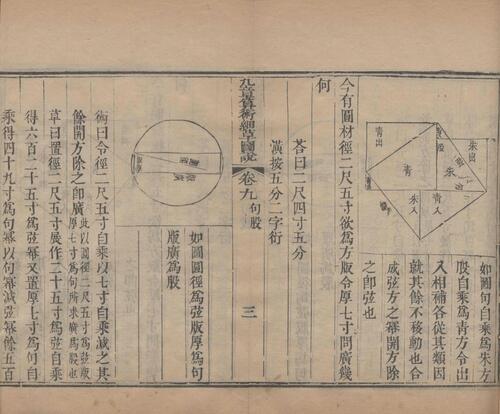 朱出
青出
青
朱
朱入
青入
如圖句自乘爲朱方
股自乘爲青方令出
入相補各從其類因
就其餘不移動也合
成弦方之冪開方除
之卽弦也
今有圓材徑二尺五寸欲爲方版令厚七寸問廣幾
何
荅曰二尺四寸五分
潢按五分二字衍
九章算術細草圖說 卷九 句股 三
如圖圓徑爲弦版厚爲句
版廣爲股
術曰令徑二尺五寸自乘以七寸自乘減之其
餘開方除之卽廣 此以圓徑二尺五寸爲弦版
厚七寸爲句所求廣爲股也
草曰置徑二尺五寸展作二十五寸爲弦自乘
得六百二十五寸爲弦冪又置厚七寸爲句自
乘得四十九寸爲句冪以句冪減弦冪餘五百